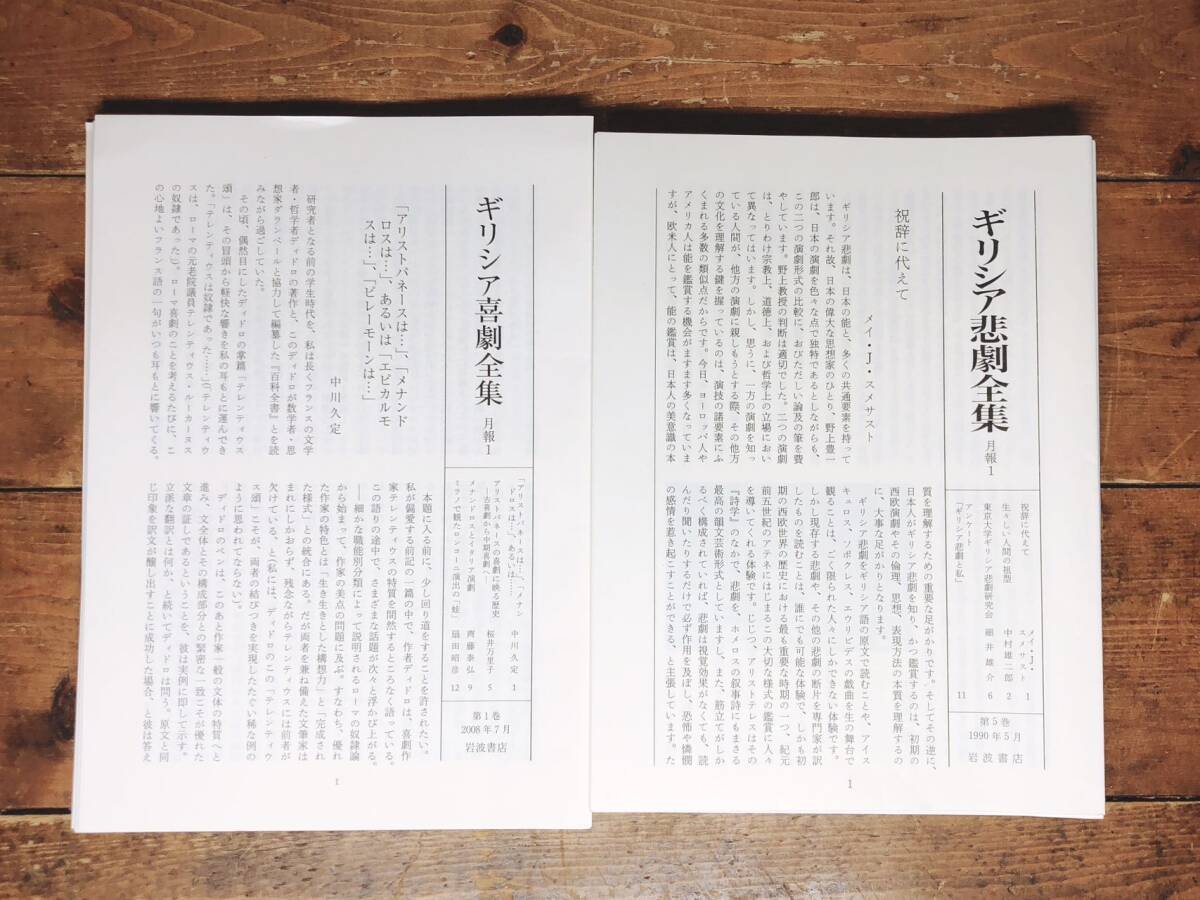 ギリシア悲劇全集 月報1
祝辞に代えて
メイ・J・スメサスト 1
生々しい人間の祖型
中村雄二郎 2
東京大学ギリシア悲劇研究会 細井雄介 6
アンケート
「ギリシア悲劇と私」 11
第5巻
1990年5月
岩波書店
祝辞に代えて
メイ・J・スメサスト
ギリシア悲劇は、日本の能と、多くの共通要素を持って
います。それ故、日本の偉大な思想家のひとり、野上豊一
郎は、日本の演劇を色々な点で独特であるとしながらも、
この二つの演劇形式の比較に、おびただしい論及の筆を費
やしています。野上教授の判断は適切でした。二つの演劇
は、とりわけ宗教上、道徳上、および哲学上の立場におい
て異なってはいます。しかし、思うに、一方の演劇を知っ
ている人間が、他方の演劇に親しもうとする際、その他方
の文化を理解する鍵を握っているのは、演技の諸要素にふ
くまれる多数の類似点だからです。今日、ヨーロッパ人や
アメリカ人は能を鑑賞する機会がますます多くなっていま
すが、欧米人にとって、能の鑑賞は、日本人の美意識の本
質を理解するための重要な足がかりです。そしてその逆に、
日本人がギリシア悲劇を知り、かつ鑑賞するのは、初期の
西欧演劇やその倫理、思想、表現方法の本質を理解するの
に、大事な足がかりとなります。
ギリシア悲劇をギリシア語の原文で読むことや、アイス
キュロス、ソポクレス、エウリピデスの戯曲を生の舞台で
観ることは、ごく限られた人々にしかできない体験です。
しかし現存する悲劇や、その他の悲劇の断片を専門家が訳
したものを読むことは、誰にでも可能な体験で、しかも初
期の西欧世界の歴史における最も重要な時期の一つ、紀元
前五世紀のアテネにはじまるこの大切な様式の鑑賞に人々
を導いてくれる体験です。じじつ、アリストテレスはその
『詩学』のなかで、悲劇を、ホメロスの叙事詩にもまさる
最高の韻文芸術形式としていますし、また、筋立てがしか
るべく構成されていれば、悲劇は視覚効果がなくても、読
んだり聞いたりするだけで必ず作用を及ぼし、恐怖や憐憫
の感情を惹き起こすことができる、と主張しています。た
1
ギリシア喜劇全集 月報1
「アリストパネースは…」、「メナン
ドロスは…」、あるいは… 中川久定 1
アリストパネースの喜劇に映る歴史
―古喜劇から中期喜劇へ― 桜井万里子 5
メナンドロスとイタリア演劇 齊藤泰弘 9
ミラノで観たロンコーニ演出の「蛙」 扇田昭彦 12
第1巻
2008年7月
岩波書店
「アリストパネースは…」、「メナンド
ロスは…」、あるいは「エピカルモ
スは…」、「ピレーモーンは…」
中川久定
研究者となる前の学生時代を、私は長くフランスの文学
者・哲学者ディドロの著作と、このディドロが数学者・思
想家ダランベールと協力して編纂した『百科全書』とを読
みながら過ごしていた。
その頃、偶然目にしたディドロの掌篇「テレンティウス
頌」は、その冒頭から軽快な響きを私の耳もとに運んでき
た。「テレンティウスは奴隷であった……」(テレンティウ
スは、ローマの元老院議員テレンティウス・ルーカーヌス
の奴隷であった)。ローマ喜劇のことを考えるたびに、こ
の心地よいフランス語の一句がいつも耳もとに響いてくる。
本題に入る前に、少し回り道をすることを許されたい。
私が偏愛する前記の一篇の中で、作者ディドロは、喜劇作
家テレンティウスの特質を間然するところなく語っている。
この語りの途中で、さまざまな話題が次々と浮かび上がる。
――細かな職能別分類によって説明されるローマの奴隷論
から始まって、作家の美点の問題に及ぶ。すなわち、優れ
た作家の特色とは「生き生きとした構想力」と「完成され
た様式」との統合にある。だが両者を兼ね備えた文筆家は
まれにしかおらず、残念ながらテレンティウスには前者が
欠けている、と(私には、ディドロのこの「テレンティウ
ス頌」こそが、両者の結びつきを実現したたぐい稀な例の
ように思われてならない)。
ディドロのペンは、このあと作家一般の文体の特質へと
進み、文全体とその構成部分との緊密な一致こそが優れた
文章の証しであるということを、彼は実例に即して示す。
立派な翻訳とは何か、と続いてディドロは問う。原文と同
じ印象を訳文が醸し出すことに成功した場合、と彼は答え
1